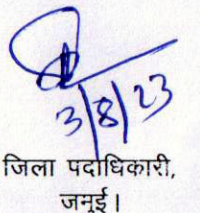 3/8/23
जिला पदाधिकारी,
जमुई।